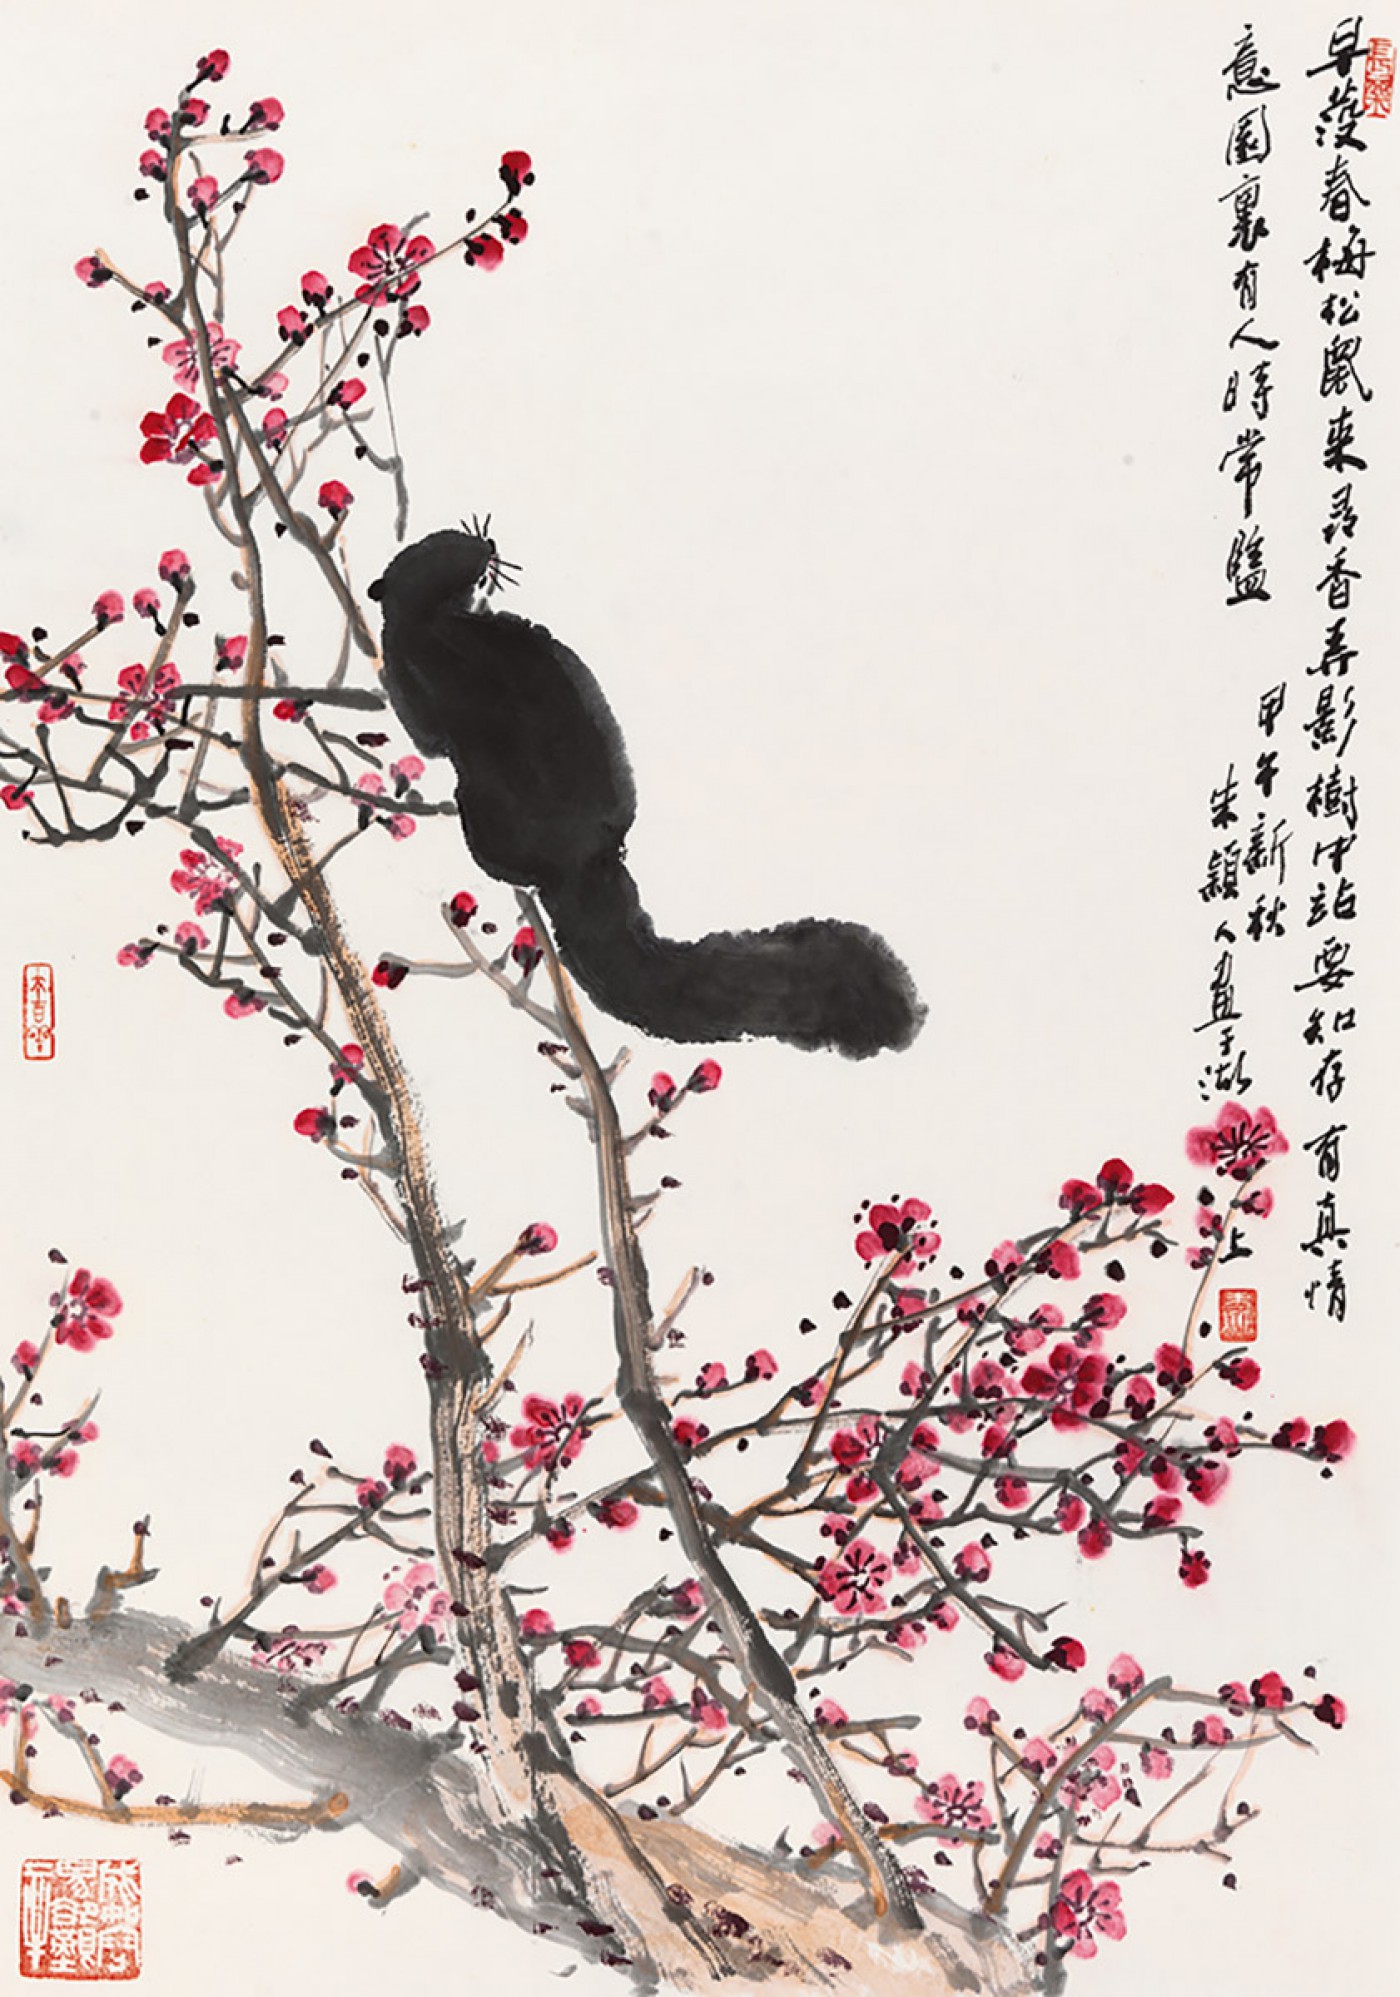 早发春梅松鼠来寻香弄影樹中站要知存有真情
意園裏有人時常盬
甲午新秋
朱穎人畫于湖上